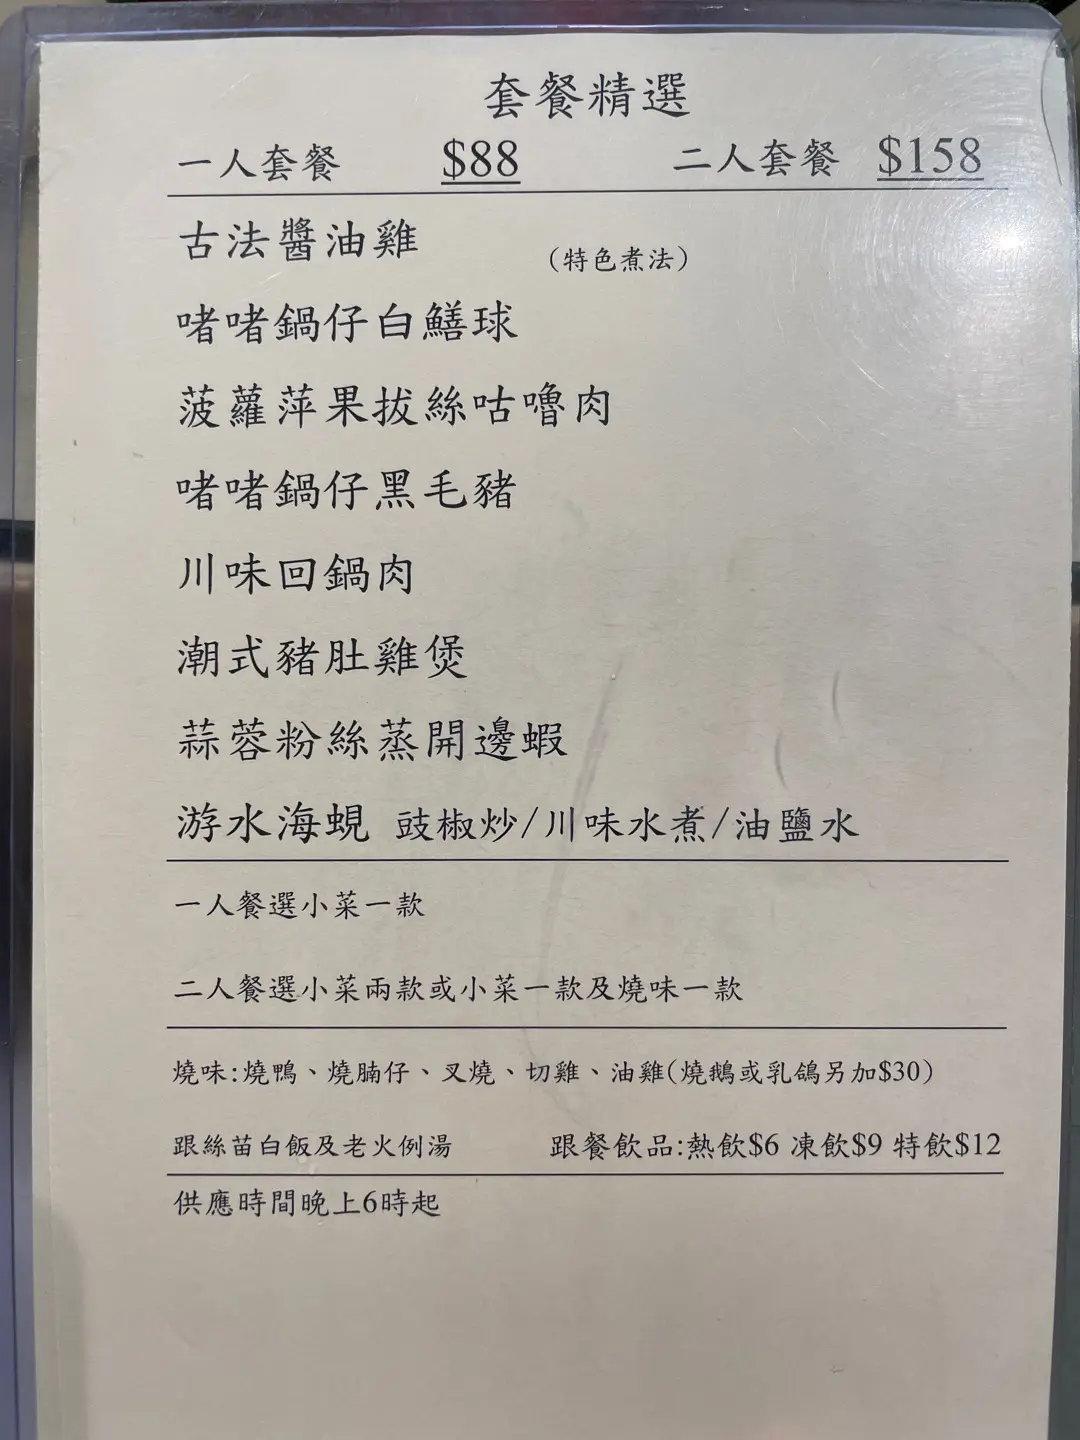 套餐精選
一人套餐 $88 二人套餐 $158
古法醬油雞 (特色煮法)
啫啫鍋仔白鱔球
菠蘿萍果拔絲咕嚕肉
啫啫鍋仔黑毛豬
川味回鍋肉
潮式豬肚雞煲
蒜蓉粉絲蒸開邊蝦
游水海蜆 豉椒炒/川味水煮/油鹽水
一人餐選小菜一款
二人餐選小菜兩款或小菜一款及燒味一款
燒味:燒鴨、燒腩仔、叉燒、切雞、油雞(燒鵝或乳鴿另加$30)
跟絲苗白飯及老火例湯 跟餐飲品:熱飲$6 凍飲$9 特飲$12
供應時間晚上6時起